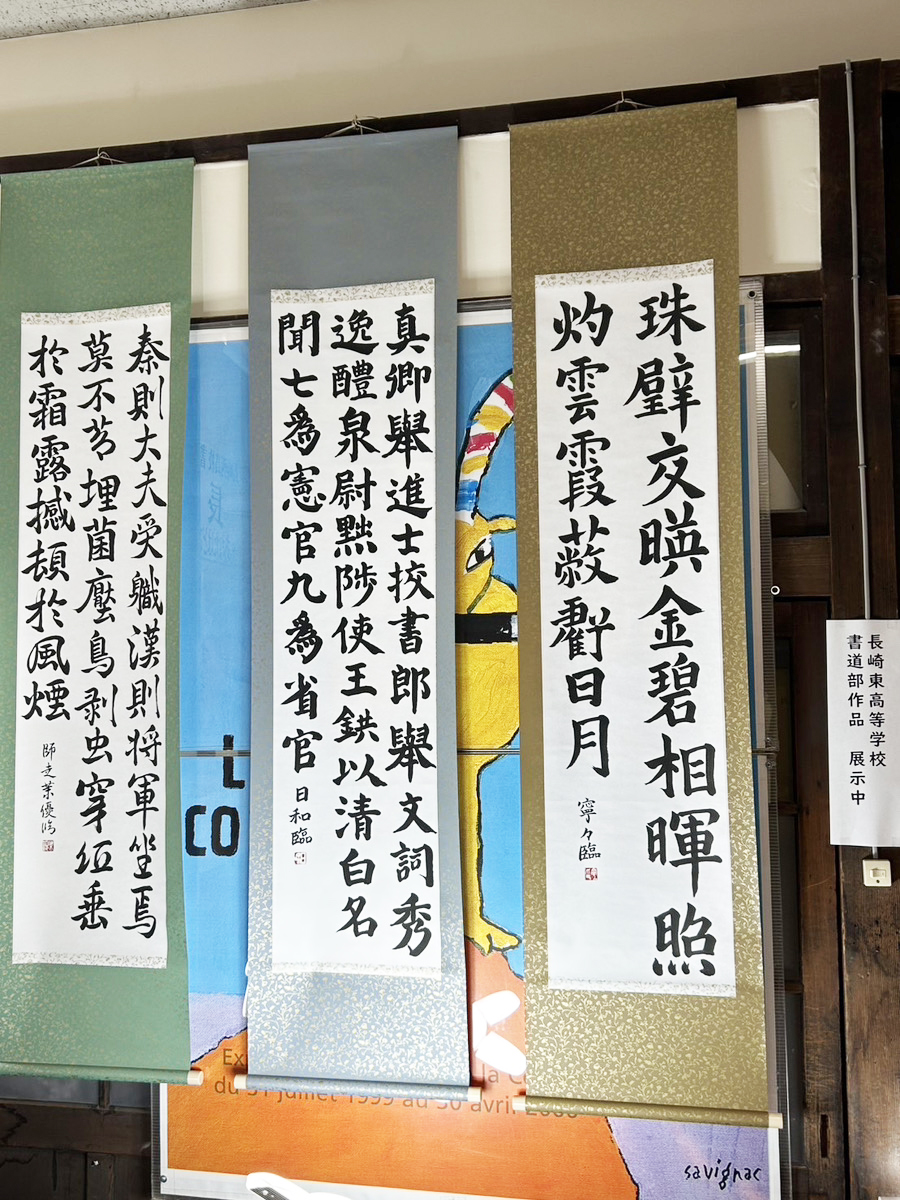 珠璧交暎金碧相暉照
灼雲霞蔽虧日月
寧々臨
真卿舉進士挍書郎舉文詞秀
逸醴泉尉黜陟使王鉷以清白名
聞七為憲官九為省官
日和臨
秦則大夫受軄漢則将軍坐焉
莫不苔埋菌壓鳥剥虫穿低垂
於霜露撼頓於風煙
長崎東高等学校
書道部作品 展示中
L
CO
du 31 juillet 1999 au 30 avril 2000
savignac